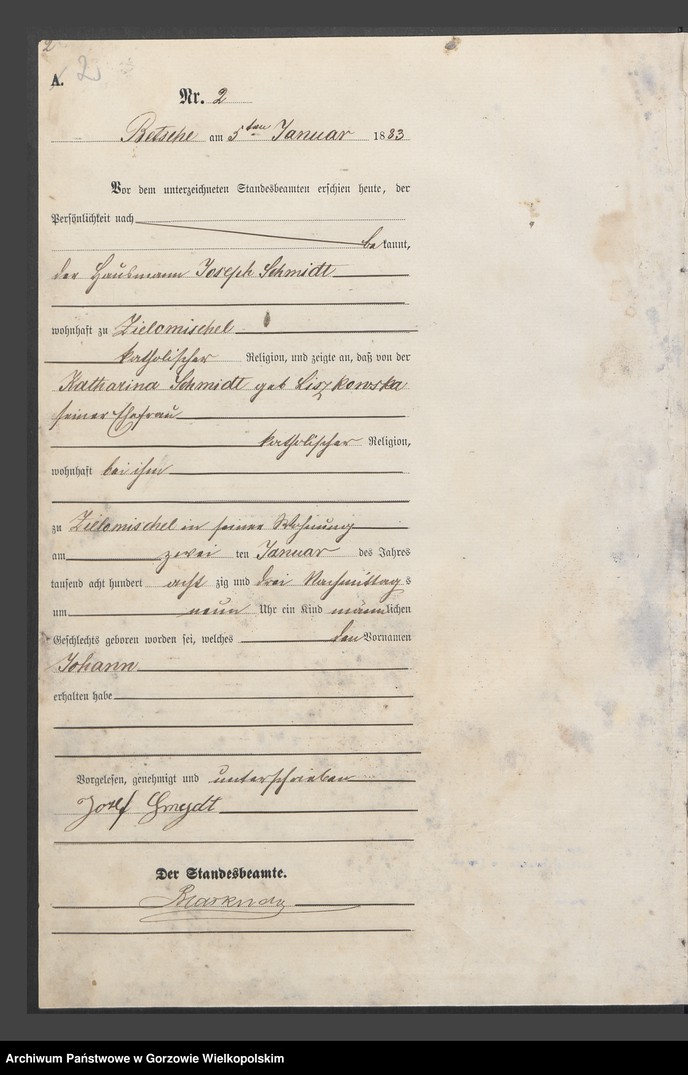 2
A. 2
Nr. 2
Betsche am 5ten Januar 1883
Vor dem unterzeichneten Standesbeamten erschien heute, der
Persönlichkeit nach
bekannt,
der Hausmann Joseph Schmidt
wohnhaft zu Zielomischel
katholischer Religion, und zeigte an, daß von der
Katharina Schmidt geb Liszkowska
seiner Ehefrau
katholischer Religion,
wohnhaft bei ihm
zu Zielomischel in seiner Wohnung
am zwei ten Januar des Jahres
tausend acht hundert acht zig und drei Nachmittags
um neun Uhr ein Kind männlichen
Geschlechts geboren worden sei, welches den Vornamen
Johann
erhalten habe
Vorgelesen, genehmigt und unterschrieben
Josef Szmydt
Der Standesbeamte.
Archiwum Państwowe w Gorzowie Wielkopolskim